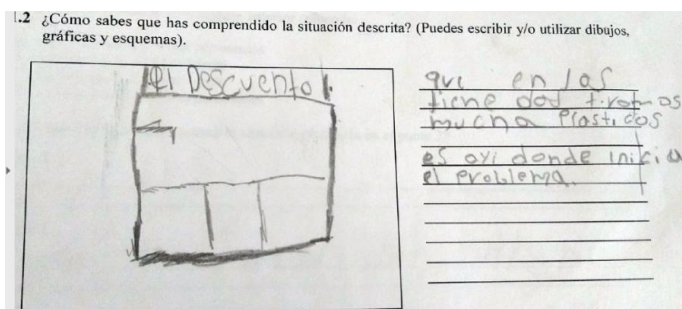 1.2 ¿Cómo sabes que has comprendido la situación descrita? (Puedes escribir y/o utilizar dibujos,
gráficas y esquemas).
El Descuento
que en las
tiene dos
mucha
es ayi donde inicia
el problema.